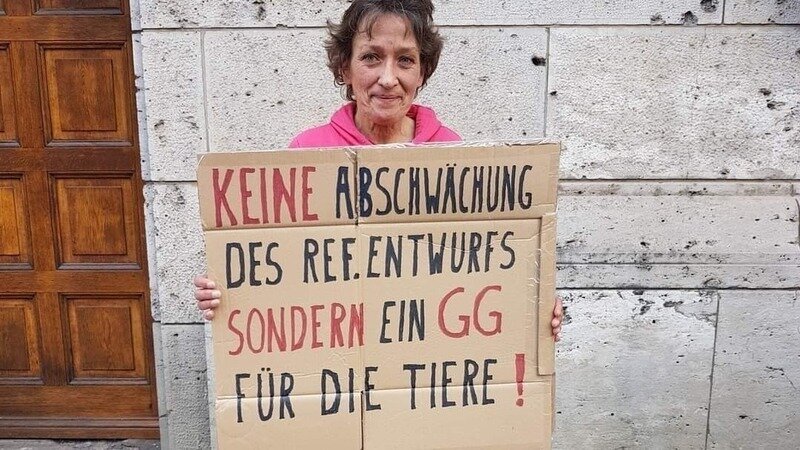 KEINE ABSCHWÄCHUNG
DES REF.ENTWURFS
SONDERN EIN GG
FÜR DIE TIERE!